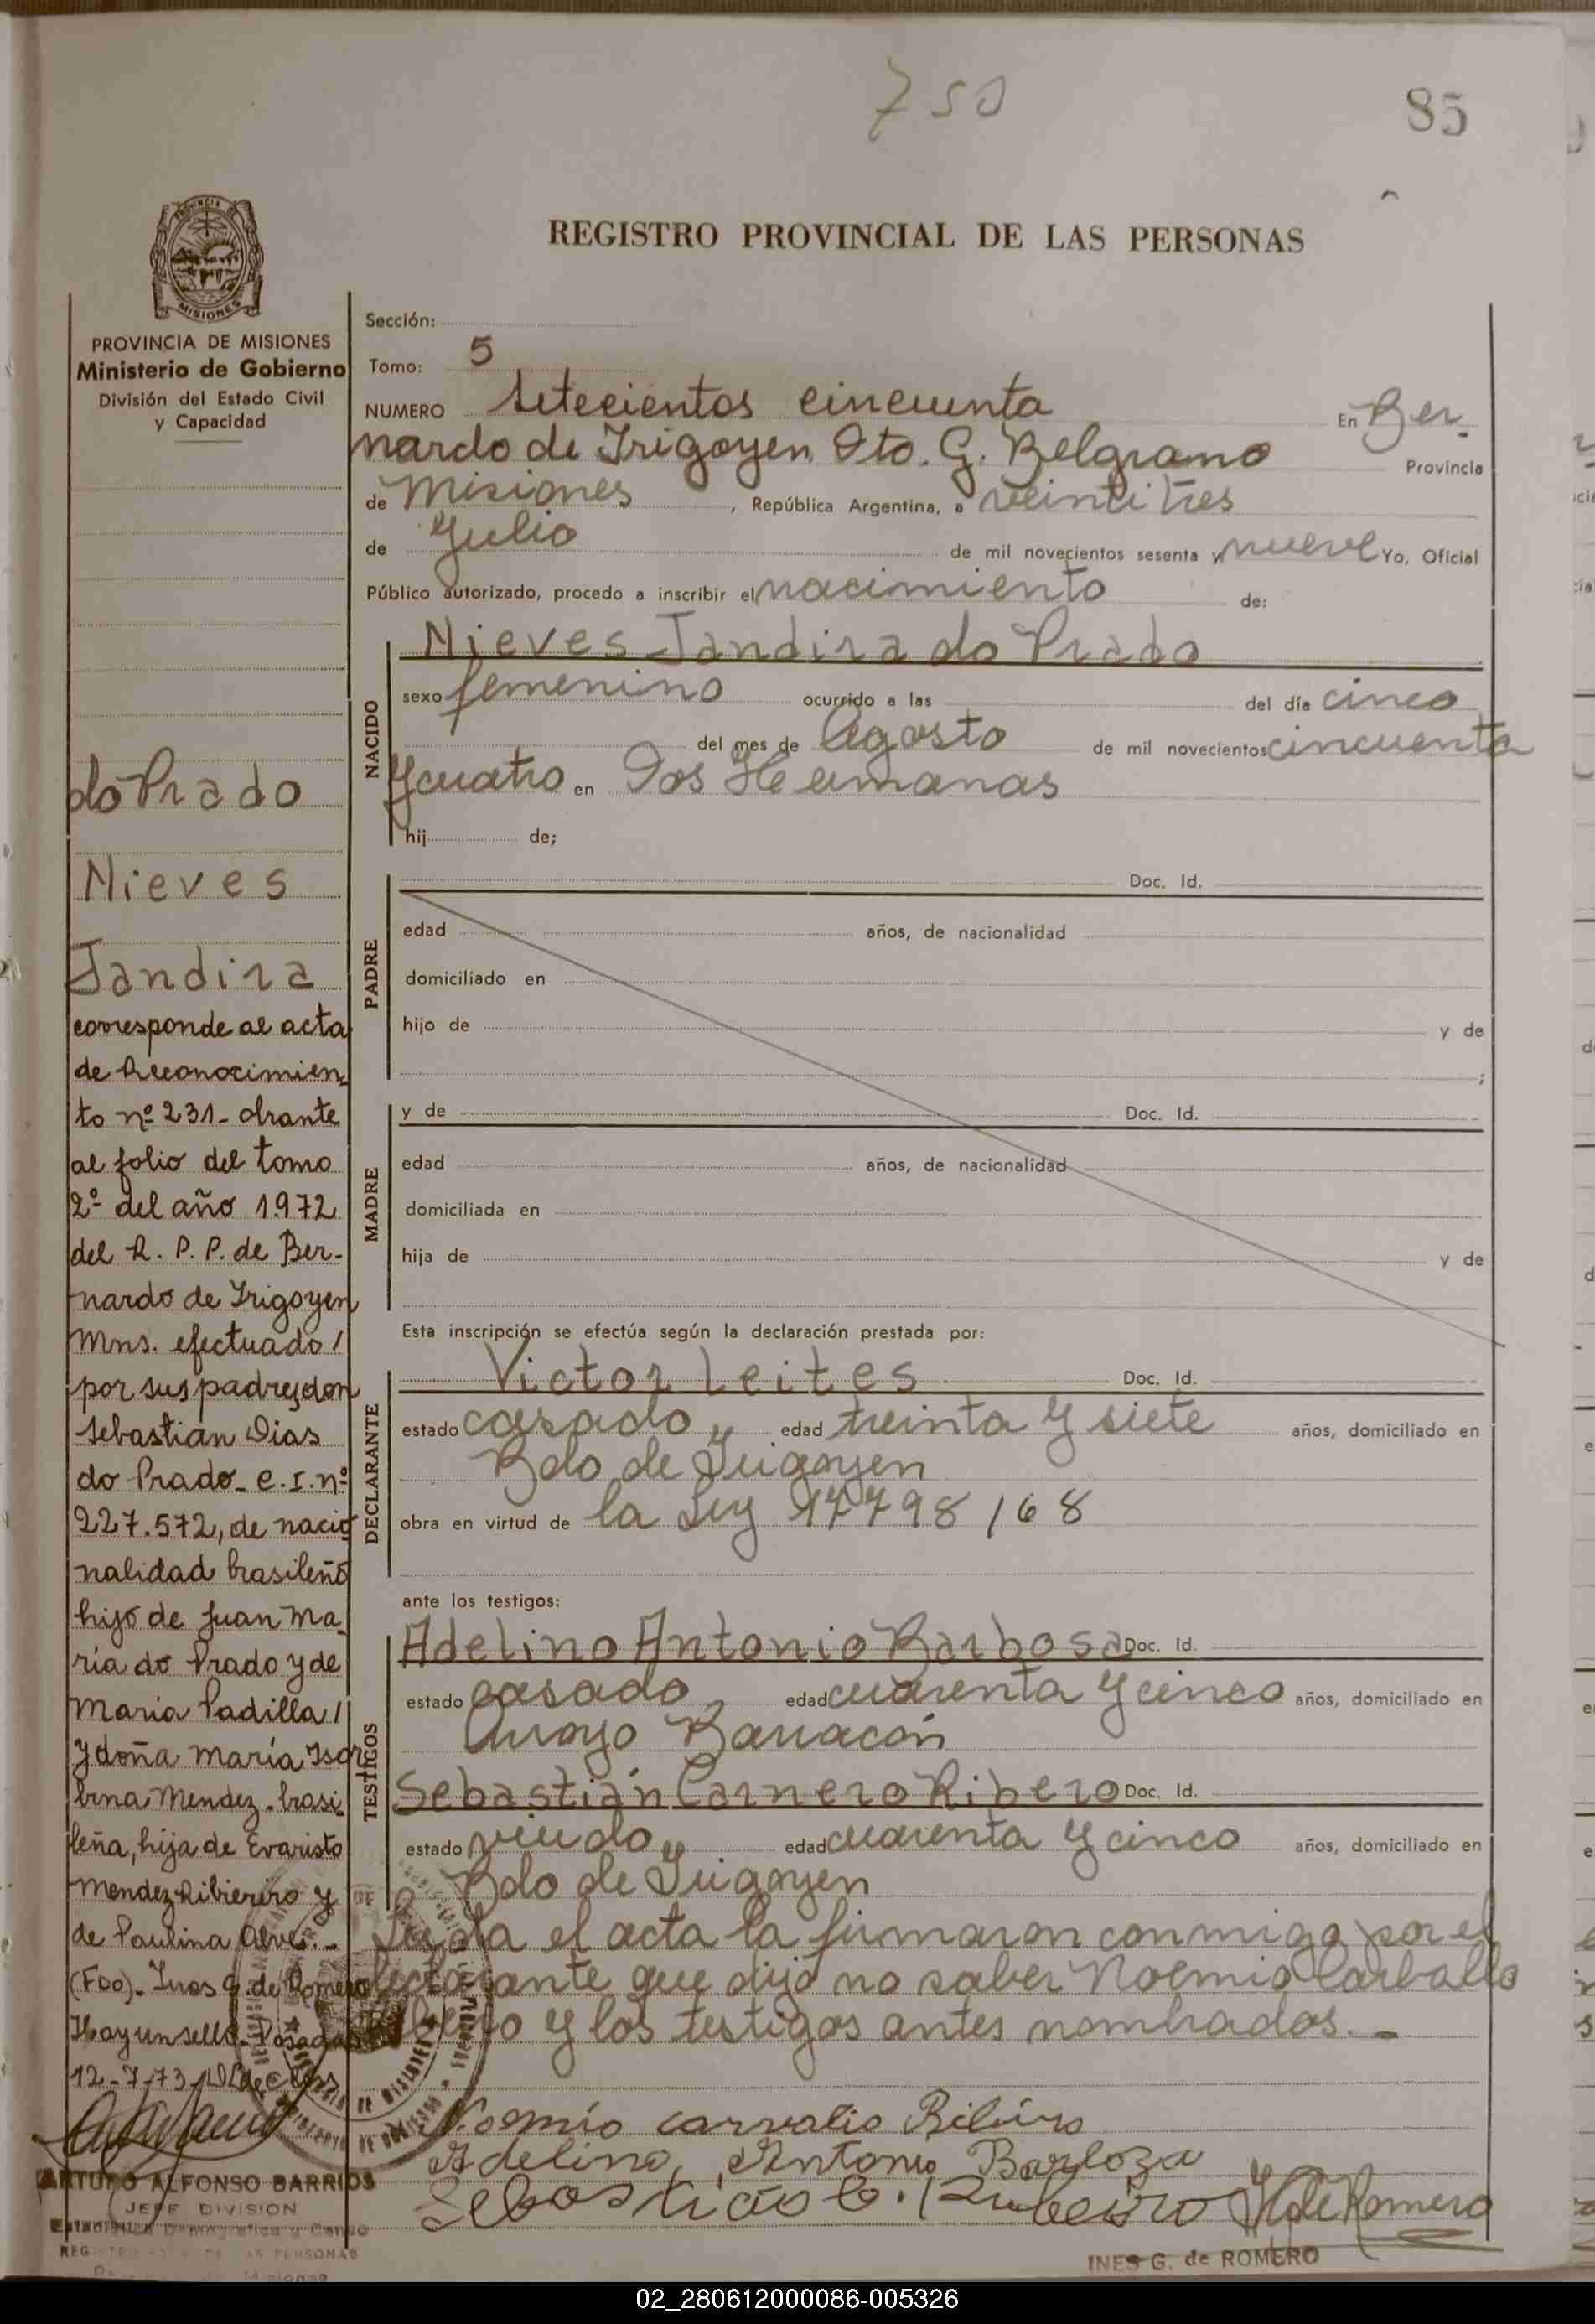 750
85
REGISTRO PROVINCIAL DE LAS PERSONAS
MISIONES
PROVINCIA DE MISIONES
Ministerio de Gobierno
División del Estado Civil
y Capacidad
do Prado
Nieves
Jandira
corresponde al acta
de Reconocimien-
to nº 231- obrante
al folio del tomo
2º del año 1972
del R. P. P. de Ber-
nardo de Irigoyen
Mns. efectuado /
por sus padres don
Sebastian Dias
do Prado - C.I. nº
227.572, de nacio
nalidad brasileño
hijo de Juan Ma-
ría do Prado y de
Maria Padilla /
y doña María Isol
bina Mendez - brasi
leña, hija de Evaristo
Mendez Ribierero y
de Paulina Alves.-
(Fdo). Ines G. de Romero
Hay un sello - Posadas
12-7-73
ARTURO ALFONSO BARRIOS
JEFE DIVISION
Estadistica Demografica y Censo
Sección:
Tomo: 5
NUMERO Setecientos cincuenta En Ber-
nardo de Irigoyen Dto. G. Belgrano Provincia
de Misiones, República Argentina, a veinti tres
de Julio de mil novecientos sesenta y nueve Yo, Oficial
Público autorizado, procedo a inscribir el nacimiento de:
NACIDO
Nieves Jandira do Prado
sexo femenino ocurrido a las del día cinco
del mes de Agosto de mil novecientos cincuenta
y cuatro en Dos Hermanas
hij de;
PADRE
Doc. Id.
edad años, de nacionalidad
domiciliado en
hijo de y de
;
MADRE
y de Doc. Id.
edad años, de nacionalidad
domiciliada en
hija de y de
Esta inscripción se efectúa según la declaración prestada por:
DECLARANTE
Victor Leites Doc. Id.
estado casado, edad treinta y siete años, domiciliado en
Bdo de Irigoyen
obra en virtud de la Ley 17798/68
ante los testigos:
TESTIGOS
Adelino Antonio Barbosa Doc. Id.
estado casado, edad cuarenta y cinco años, domiciliado en
Arroyo Barracón
Sebastián Carnero Ribero Doc. Id.
estado viudo, edad cuarenta y cinco años, domiciliado en
Bdo de Irigoyen
Leída el acta la firmaron conmigo por el
declarante que dijo no saber Noemio Carballo
Ribero y los testigos antes nombrados.-
Noemio Carvalio Ribiro
Adelino Antonio Barloza
Sebastião C. Rubeiro H de Romero
INES G. de ROMERO
02_280612000086-005326